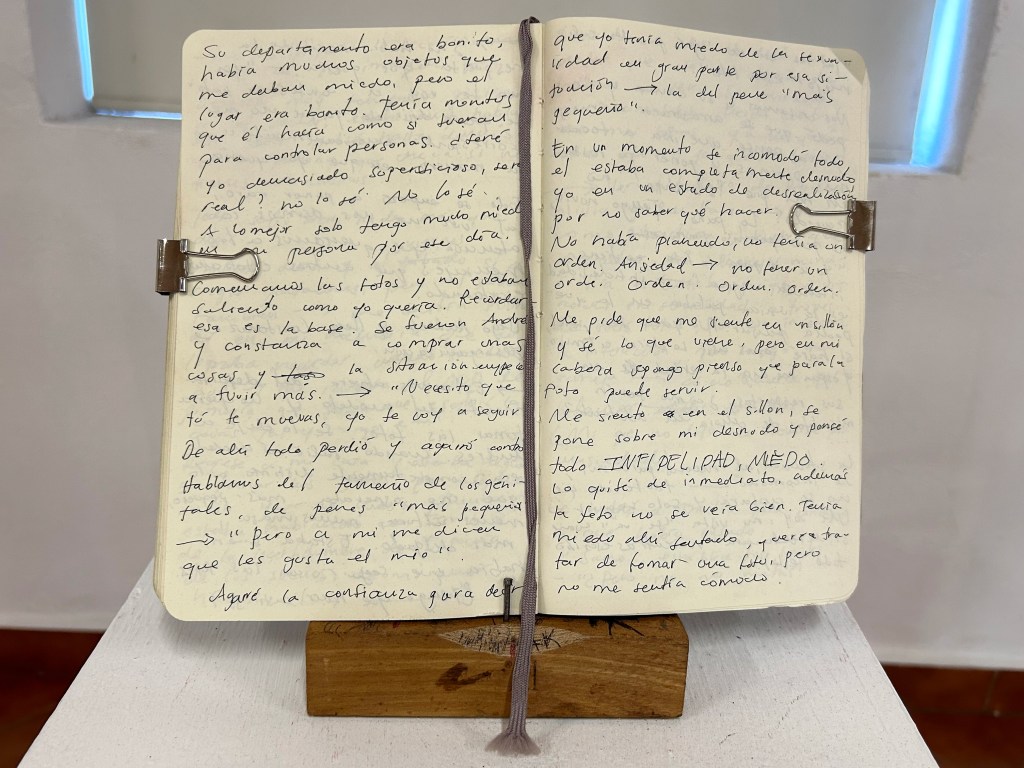 Su departamento era bonito,
había muchos objetos que
me daban miedo, pero el
lugar era bonito. Tenía monitos
que él hacía como si fueran
para controlar personas. ¿Seré
yo demasiado supersticioso, será
real? no lo sé. No lo sé.
A lo mejor solo tengo mucho mied
persona por ese día.
Comenzamos las fotos y no estaban
saliendo como yo quería. Recordar
esa es la base. Se fueron André
y constanza a comprar unas
cosas y la situación empezó
a fluir más. → "Necesito que
tú te muevas, yo te voy a seguir
De ahí todo perdió y agarró contro
Hablamos del tamaño de los geni-
tales, de penes "más pequeños
→ "Pero a mi me dicen
que les gusta el mio".
Agarré la confianza para decir
que yo tenía miedo de la sexua-
lidad en gran parte por esa si-
tuación → la del pene "más
pequeño".
En un momento se incomodó todo,
el estaba completamente desnudo
yo en un estado de desrealización
por no saber qué hacer.
No había planeado, no tenía un
orden. Ansiedad → no tener un
orde. Orden. Orden. Orden.
Me pide que me siente en un sillón
y sé lo que viene, pero en mi
cabeza pienso que para la
foto puede servir.
Me siento en el sillón, se
pone sobre mi desnudo y pensé
todo INFIDELIDAD, MIEDO.
Lo quité de inmediato, además
la foto no se veía bien. Tenía
miedo ahí sentado, quería tra-
tar de tomar una foto, pero
no me sentía cómodo.